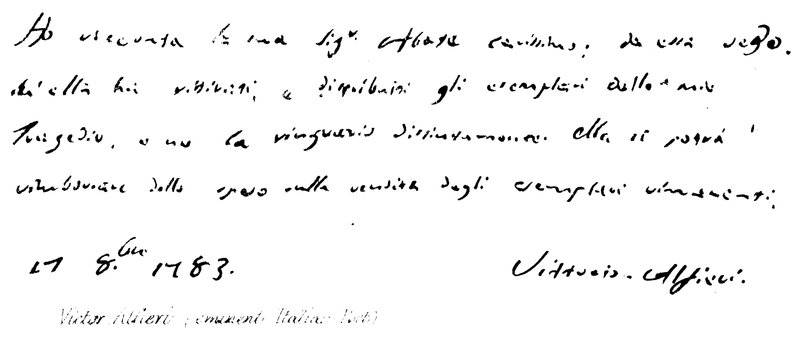 Ho ricevuta la sua Sig.r Abate carissimo; da essa vego,
ch'ella ha ritirati, e distribuiti gli esemplari delle mie
Tragedie, e ne la ringrazio distintamente. Ella si potrà
rimborsare delle spese sulla vendita degli esemplari rimanenti.
17 8.bre 1783. Vittorio Alfieri.
Victor Alfieri (eminent Italian Poet)